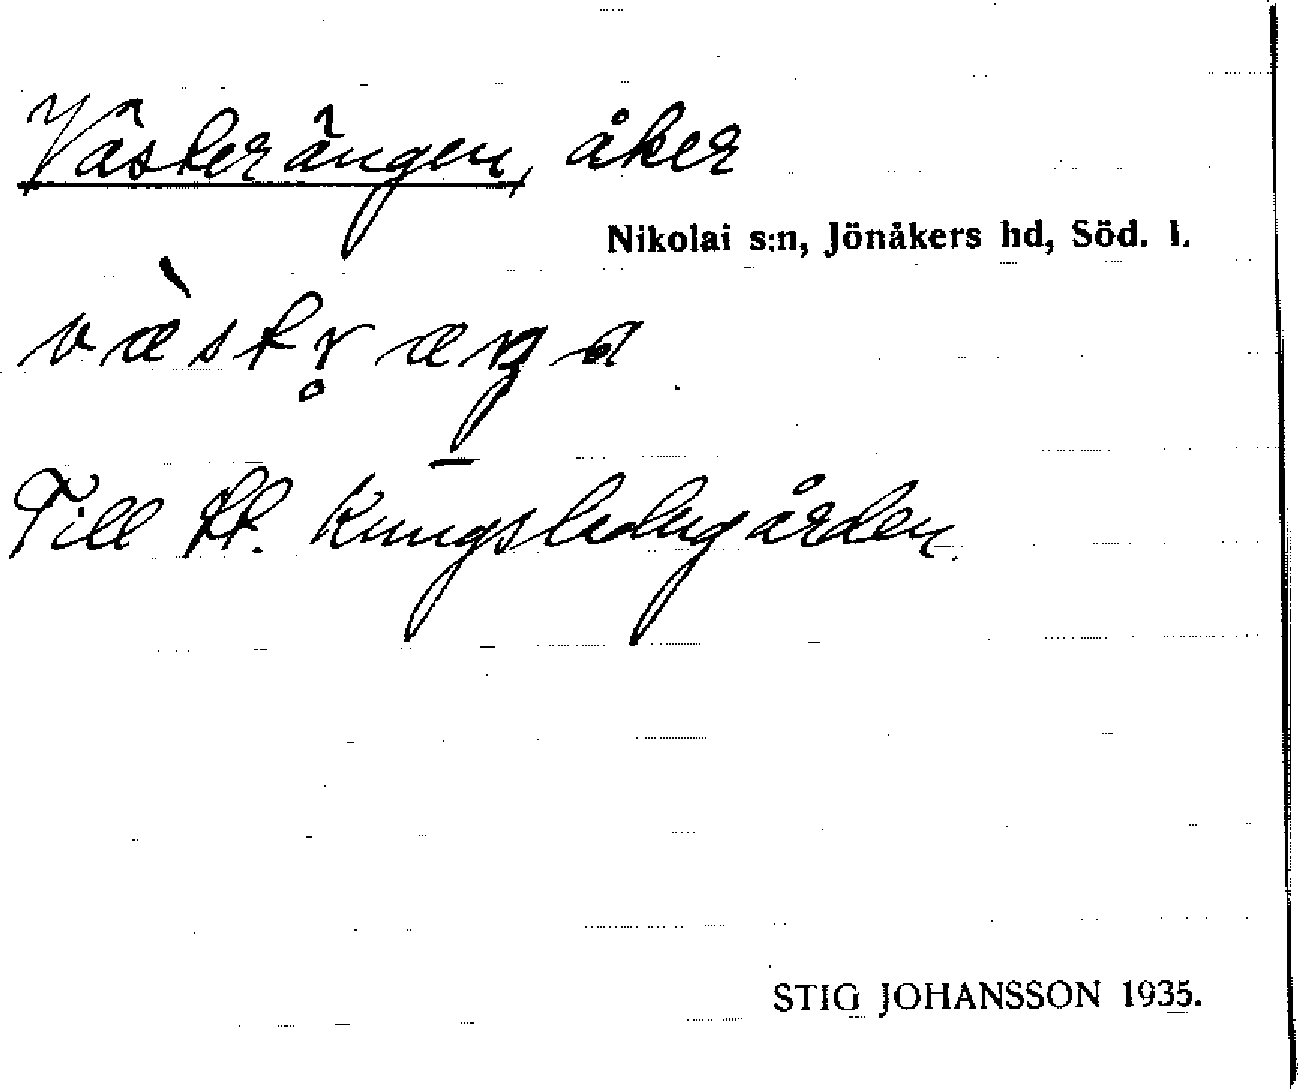 Västerängen, åker
Nikolai s:n, Jönåkers hd, Söd. l.
Till
Kungsladugården.
STIG JOHANSSON 1935.